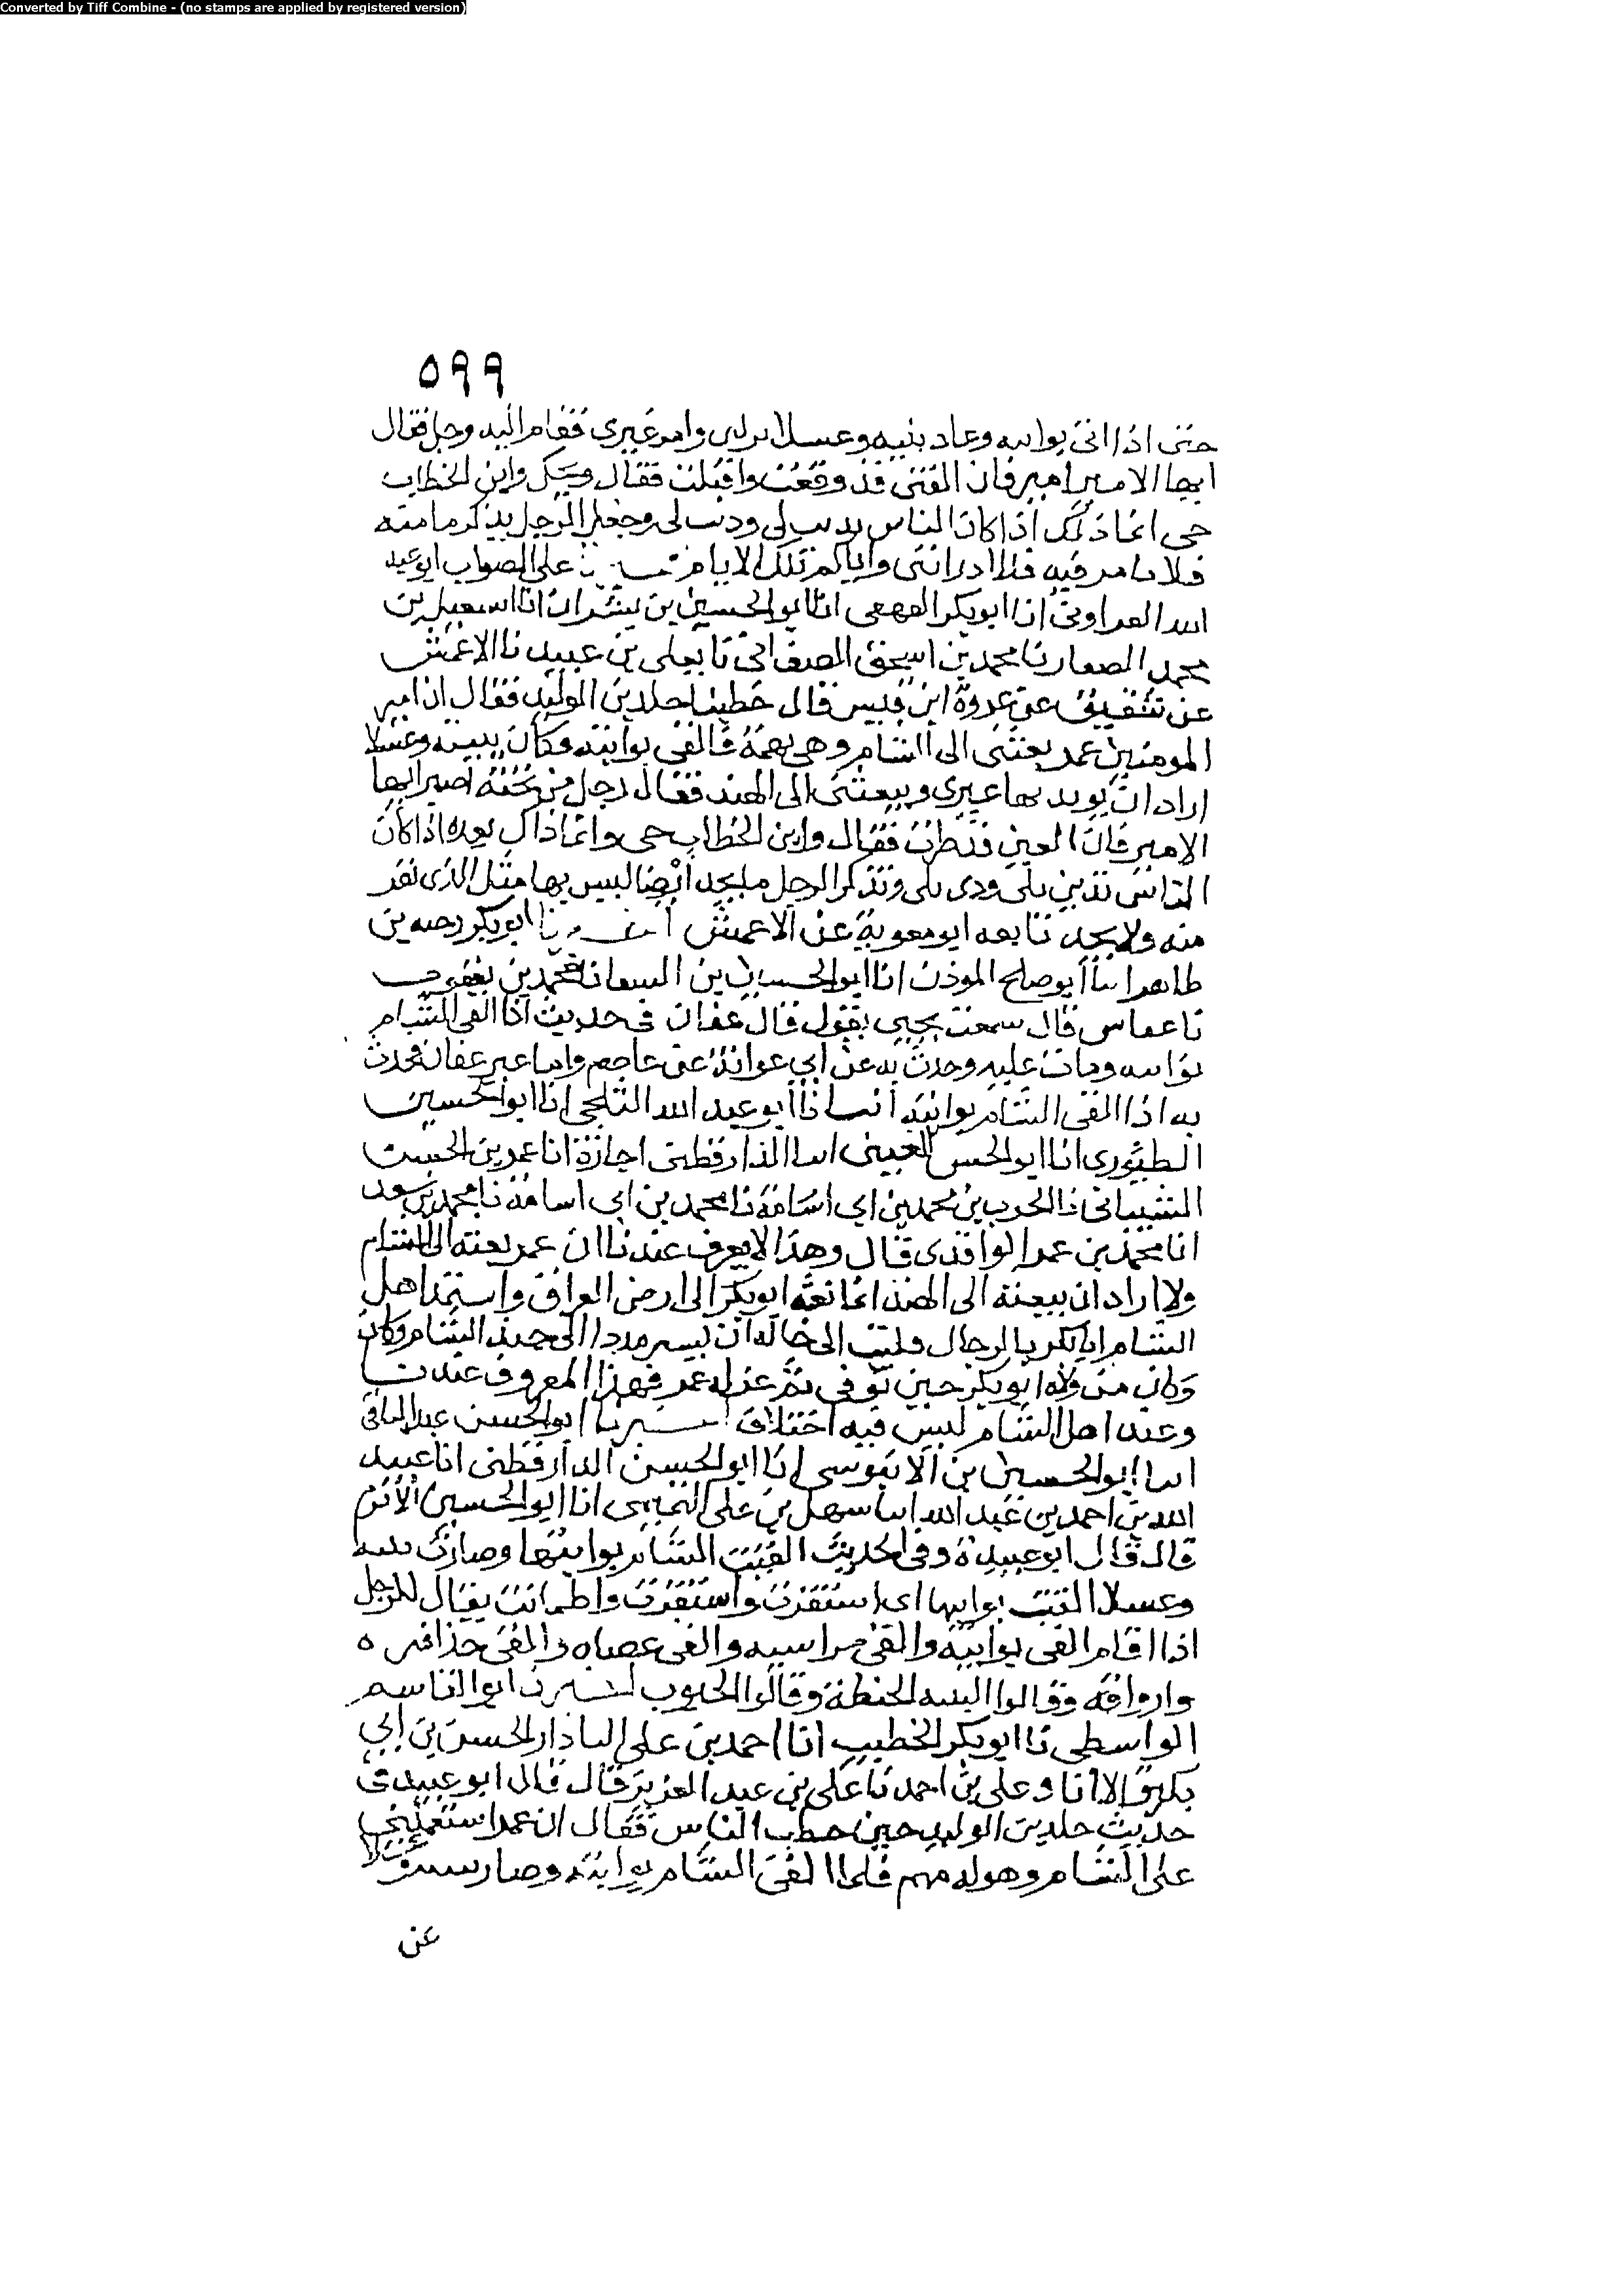 Converted by Tiff Combine - (no stamps are applied by registered version)
٥٩٩
حتى اذا انى بوانيه وعاد بثنيه وعسلا وامر غيرى فقام اليه رجل فقال
ايها الامير اصبر فان الفتنى قد وقعت واقبلت فقال ويحك وابن الخطاب
حى انما ذلك اذا كان الناس بذى بلى وذى بلى وجعل الرجل يذكر ما منه
فلا نامر فيه فلا ادرانتى واياكم تلك الايام على الصواب ابو عبد
الله الفراوى انا ابو بكر البيهقى انا ابو الحسين بن بشران انا اسمعيل بن
محمد الصفار نا محمد بن اسحق الصغانى نا يعلى بن عبيد نا الاعمش
عن شقيق عن عروة ابن قيس قال خطبنا خلد بن الوليد فقال ان امير
المومنين عمر بعثنى الى الشام وهى بهمة فالقى بوانيه فكان بثنيه وعسلا
اراد ان يوير بها غيرى ويبعثنى الى الهند فقال رجل من تحته اصبر ايها
الامير فان الفتن قد ظهرت فقال وابن الخطاب حى وانما ذاك بعده اذا كان
الناس بذى بلى وذى بلى وتذكر الرجل فليجد ارضا ليس بها مثل الذى نفر
منه ولا يجد تابعه ابو معوية عن الاعمش ابو بكر وجيه بن
طاهر انا ابو صلح الموذن انا ابو الحسين بن السقا نا محمد بن يعقوب
نا عباس قال سمعت يحيى يقول قال عفان فى حديث اذا القى الشام
بوانيه ومات عليه وحدث به عن ابي عوانة عن عاصم واما غير عفان فحدث
به اذا القى الشام بوانيه انبانا ابو عبد الله البلخى انا ابو الحسين
الطيورى انا ابو الحسن العتيقى انا الدارقطنى اجازة انا عمر بن الحسن
الشيبانى نا الحرث بن محمد بن ابي اسامة نا محمد بن ابي اسامة نا محمد بن سعد
انا محمد بن عمر الواقدى قال وهذا لا يعرف عندنا ان عمر بعثه الى الشام
ولا اراد ان يبعثه الى الهند انما بعثه ابو بكر الى ارض العراق واستمد اهل
الشام ابا بكر بالرجال فكتب الى خالد ان يسير مددا الى جند الشام وكان
وكان من ولاه ابو بكر حين توفى ثم عزله عمر فهذا المعروف عندنا
وعند اهل الشام ليس فيه اختلاف اخبرنا ابو الحسن عبد الباقى
انا ابو الحسين بن الابنوسى انا ابو الحسن الدارقطنى انا عبيد
الله بن احمد بن عبد الله انا سهل بن على انا ابو الحسين الاثرم
قال قال ابو عبيدة وفى الحديث القت الشام بوانيها وصارت بثنيه
وعسلا القت بوانيها اى استقرت واستقرت واطمانت يقال للرجل
اذا اقام القى بوانيه والقى مراسيه والقى عصاه والقى حذافيره
وارواقه وقالوا البثنيه الحنطة وقالوا الحبوب اخبرنا ابو القاسم
الواسطى نا ابو بكر الخطيب انا احمد بن على البادا والحسن بن ابي
بكر قالا انا دعلج بن احمد نا على بن عبد العزيز قال قال ابو عبيد فى
حديث خلد بن الوليد حين خطب الناس فقال ان عمر استعملنى
على الشام وهو له مهم فلما القى الشام بوانيه وصار بثنيه وعسلا
عن